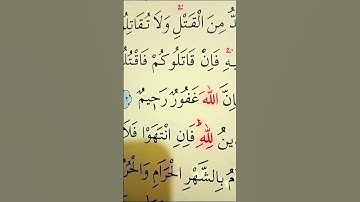 دُّ مِنَ الْقَتْلِ وَلَا تُقَاتِلُ
يهِ فَاِنْ قَاتَلُوكُمْ فَاقْتُلُ
اِنَّ اللّٰهَ غَفُورٌ رَحِيمٌ
ينُ لِلّٰهِ فَاِنِ انْتَهَوْا فَلَا
مُ بِالشَّهْرِ الْحَرَامِ وَالْحُرُ